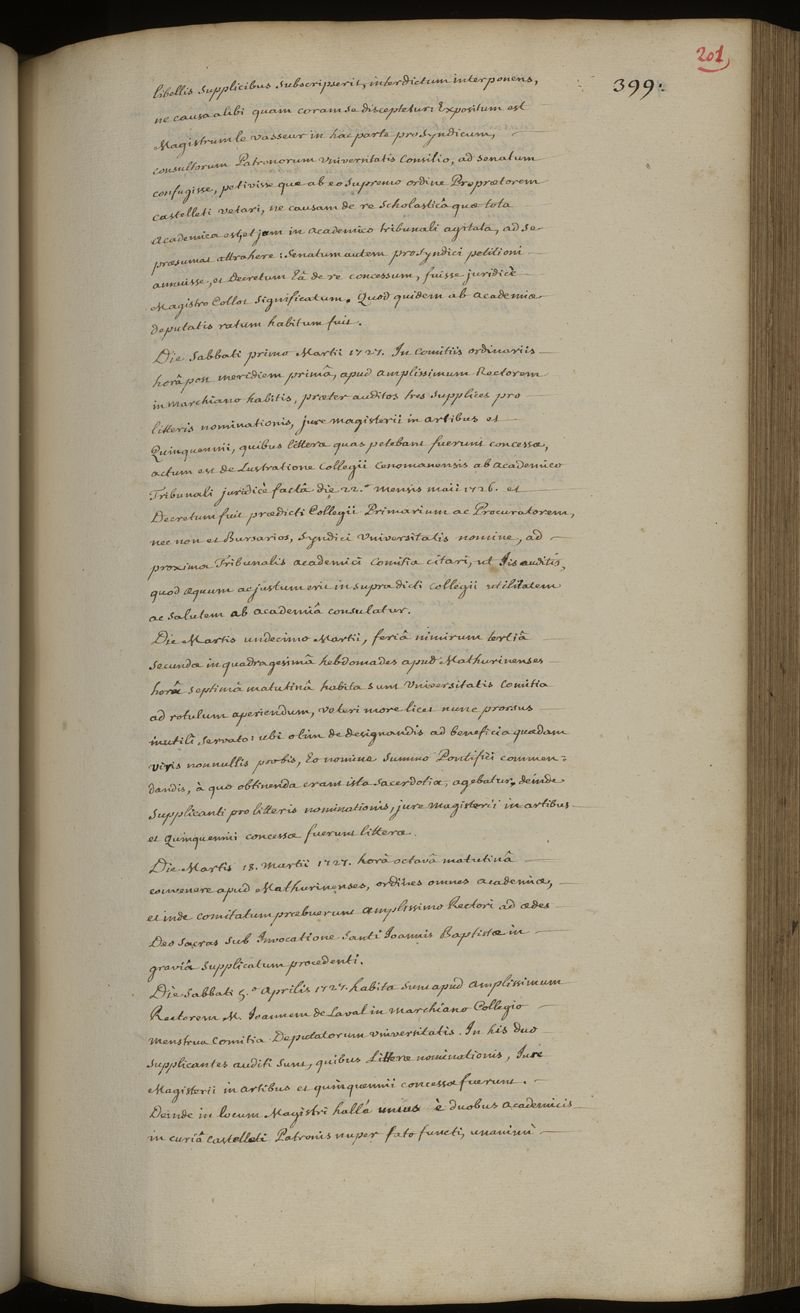 201
399.
libellis supplicibus subscripserit, interdictum interponens,
ne causa alibi quam coram se disceptetur: Expositum est
Magistrum le Vasseur in hac parte pro Syndicum,
consultorum Patronorum Universitatis Consilio, ad senatum
confugisse, petivisse que ab eo Supremo ordine Propraetorem
Castelleti vetari, ne causam de re Scholasticâ quae tota
Academica est, et jam in academico tribunali agitata, ad se
praesumat attrahere: Senatum autem pro Syndici petitioni
annuisse, et Decretum Eâ de re concessum, fuisse juridicè
Magistro Collot Significatum. Quod quidem ab academiae
deputatis ratum habitum fuit.
Die Sabbati primo Martii 1727. In Comitiis ordinariis
horâ post meridiem primâ, apud amplissimum Rectorem
in marchiano habitis, praeter auditos tres supplices pro
litteris nominationis, jure magisterii in artibus et
Quinquennii, quibus litterae quas petebant fuerunt concessae,
actum est de Lustratione Collegii Cenomanensis ab academico
Tribunali juridicè factâ die 22.ª mensis maii 1726. et
Decretum fuit praedicti Collegii Primarium ac Procuratorem,
nec non et Bursarios, Syndici Universitatis nomine, ad
proxima Tribunalis academici Comitia citari, ut Iis auditis,
quod aequum ac justum erit in supradicti collegii utilitatem
ac salutem ab academiâ consulatur.
Die Martis undecimo Martii, feriâ nimirum tertiâ
secundae in quadragesimâ hebdomades apud Mathurinenses
horâ septimâ matutinâ habita sunt Universitatis Comitia
ad rotulum aperiendum, veteri more licet nunc prorsus
inutili servato: ubi olim de designandis ad beneficia quaedam
viris nonnullis probis, Eo nomine summo Pontifici commen=
dandis, à quo obtinenda erant ista Sacerdotia, agebatur, deinde
Supplicanti pro litteris nominationis, jure magisterii in artibus
et Quinquennii concessae fuerunt litterae.
Die Martis 18. Martii 1727. horâ octavâ matutinâ
convenere apud Mathurinenses, ordines omnes academiae,
et inde comitatum praebuerunt amplissimo Rectori ad aedes
Deo Sacras Sub Invocatione Santi Joannis Baptistae in
graviâ supplicatum procedenti.
Die Sabbati 5.º aprilis 1727. habita sunt apud amplissimum
Rectorem M. Joannem de Laval in Marchiano Collegio
menstrua Comitia Deputatorum Universitatis. In his duo
supplicantes auditi sunt, quibus Litterae nominationis, Jure
Magisterii in artibus et quinquennii concessae fuerunt.
Deinde in locum Magistri hallé unius è duobus academicis
in curiâ Castelleti Patronis nuper fato functi, unanimi